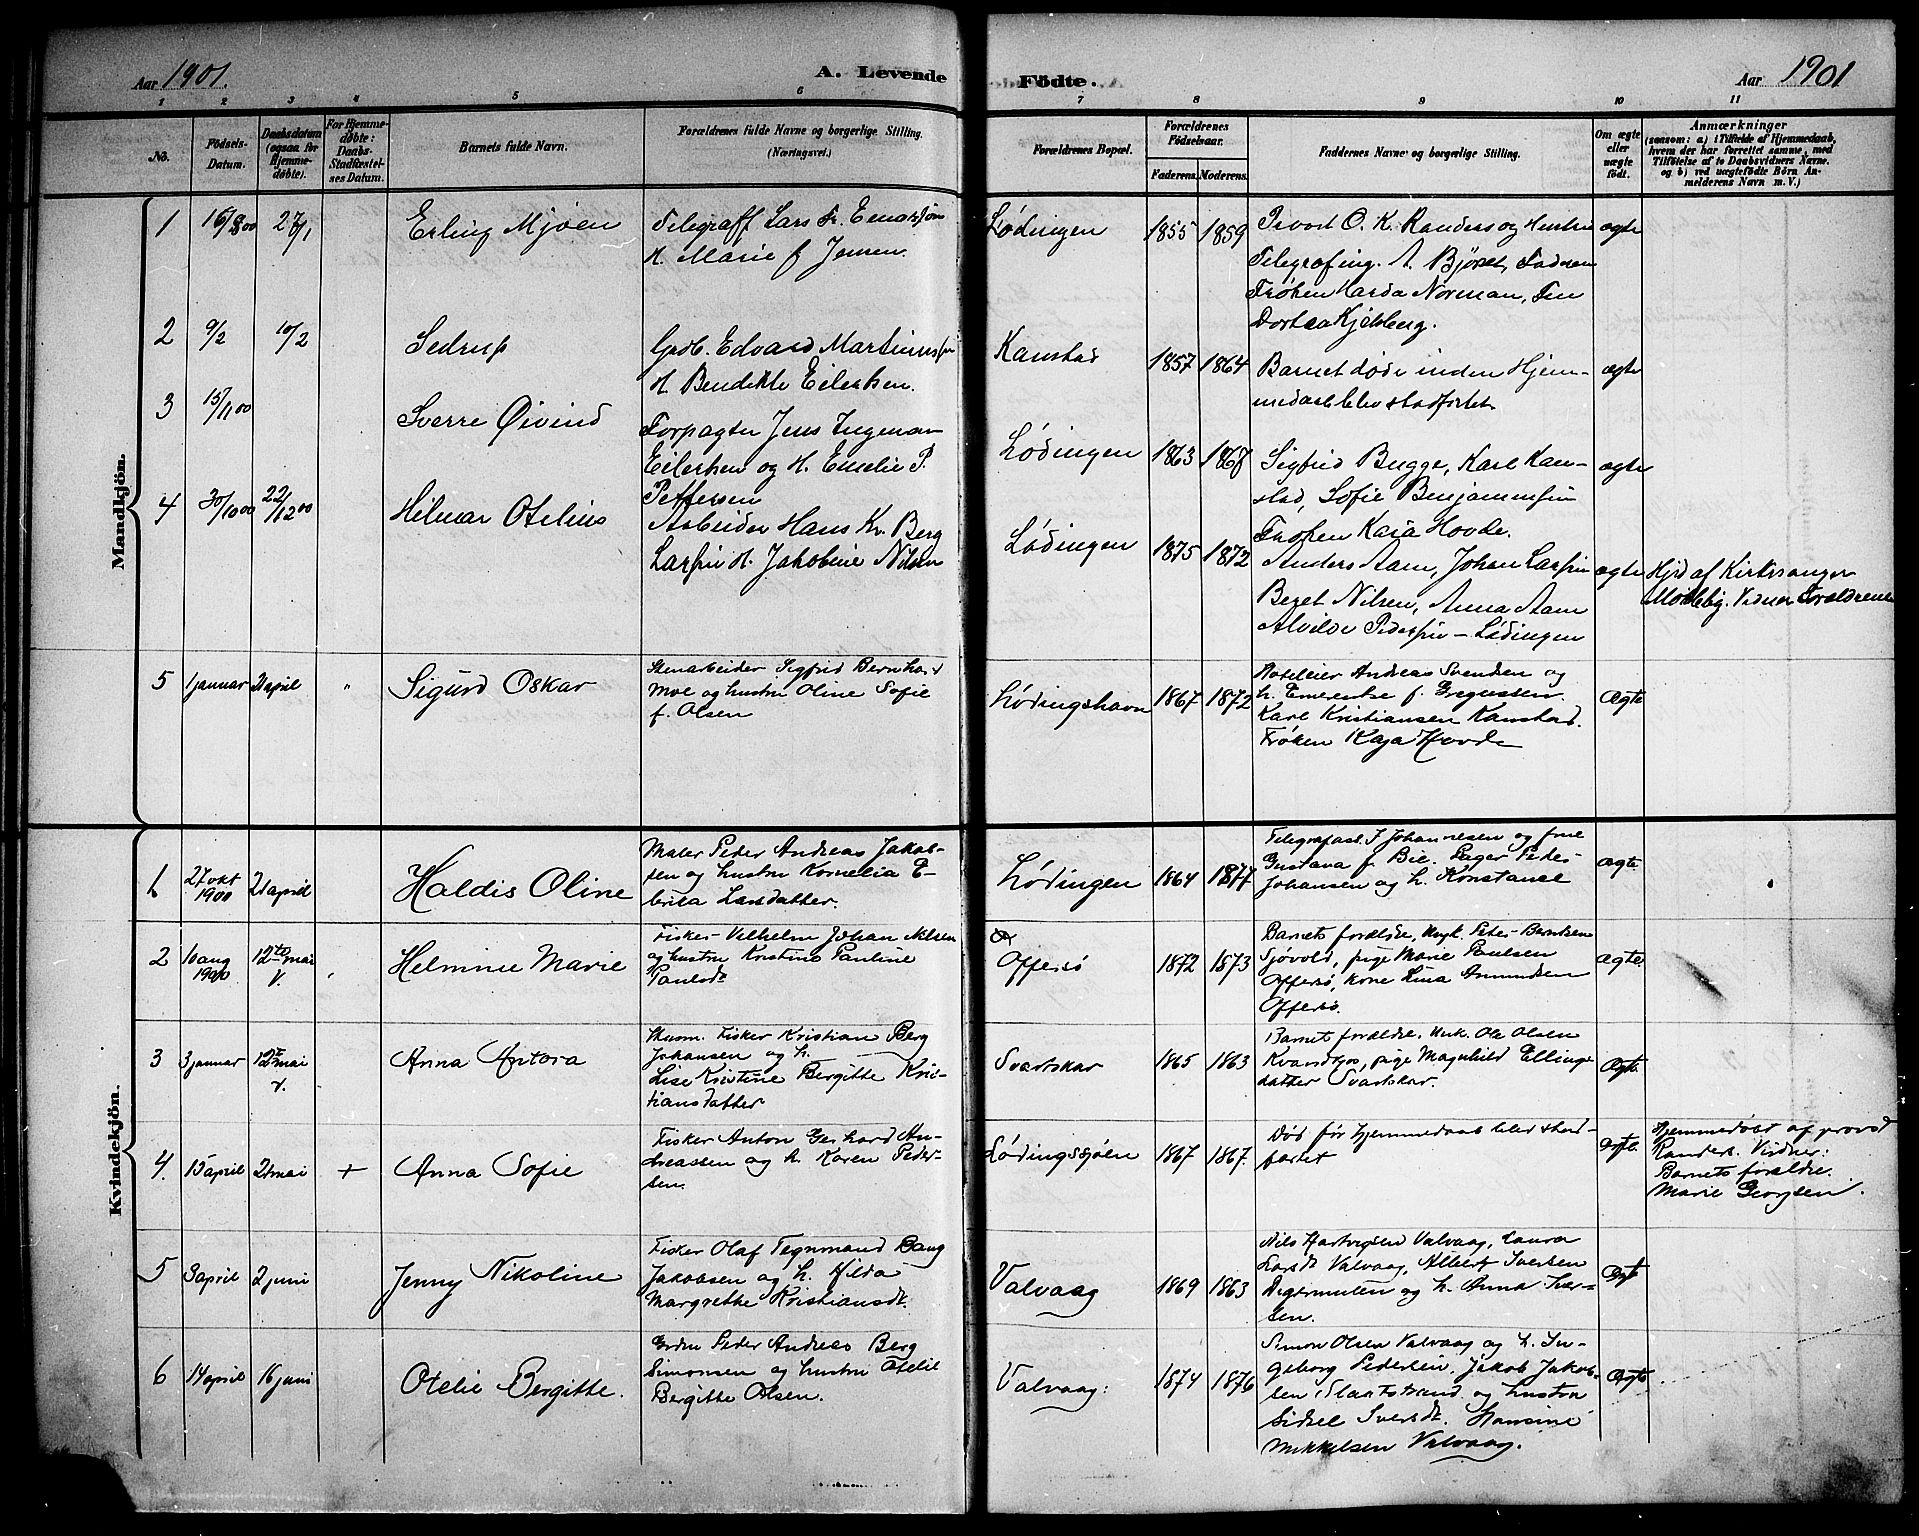 Aar 1901. A. Levende Födte. Aar 1901
1 2 3 4 5 6 7 8 9 10 11
No. Födsels-Datum. Daabsdatum (ogsaa for Hjemme-döbte). For Hjemme-döbte: Daabs-Stadfæstel-ses Datum. Barnets fulde Navn. Forældrenes fulde Navne og borgerlige Stilling. (Næringsvei.) Forældrenes Bopæl. Forældrenes Födselsaar. Faderens. Moderens. Faddernes Navne og borgerlige Stilling. Om ægte eller uægte födt. Anmærkninger (saasom: a) i Tilfælde af Hjemmedaab, hvem der har forrettet samme, med Tilföielse af to Daabsvidners Navne. og b) ved uægtefödte Börn An-melderens Navn m. V.)
Mandkjön.
1 16/8 00 27/1 Erling Mjöen
Telegraff Lars Fr.
H. Marie f Jensen.
Lødingen 1855 1859
Provst O. K. Randers og Hustru
Telegrafing. A. Bjöset,
Frøken Harda Norman,
Dortea Kjelsberg.
ægte
2 9/2 10/2 Sedrup
Grdb. Edvard Martinussen
H Bendikte Eilertsen.
Kanstad 1857 1864
Barnet døde inden Hjem-
medaab blev stadfæstet.
ægte
3 15/11 00 Sverre Öivind
Forpagter Jens Ingeman
Eilertsen og H. Emelie P.
Pettersen
Lødingen 1863 1867
Sigfrid Bugge, Karl Kan-
stad, Sofie Benjaminsen
Frøken Kaia Hovde.
ægte
4 30/10 00 22/12 00 Hilmar Otelius
Arbeider Hans Kr. Berg
Larsen H. Jakobine Nilsen
Lødingen 1875 1872
Anders Aam, Johan Larsen
Berget Nilsen, Anna Aam
Alvilde Pedersen - Lødingen
ægte
Hjd af Kirkesanger
Vidner Forældrene
5 1 januar 21 april " Sigurd Oskar
Stenarbeider Sigfrid Bernhard
Moe og hustru Oline Sofie
f. Olsen
Lødingshavn 1867 1872
Hoteleier Andreas Svendsen og
h. Emerentse f. Gregussen.
Karl Kristiansen Kanstad.
Frøken Kaja Hovde
Ægte
Kvindekjön.
1 27 okt 1900 21 april Haldis Oline
Maler Peder Andreas Jakob-
sen og hustru Kornelia E-
lerica Larsdatter.
Lødingen 1864 1877
Telegrafast. J Johannesen og frue
Gustava f. Bie. Lager Peder
Johansen og h. Konstanse
Ægte
2 10 aug 1900 12te mai V. Helmine Marie
Fisker Vilhelm Johan Nilsen
og hustru Kristine Pauline
Paulsdt
Offersø 1872 1873
Barnets forældre, Ungk. Peter Berntsen
Sjøvold, pige Marie Paulsen
Offersø, kone Lina Amundsen
Offersø.
Ægte.
3 3 januar 12te mai V. Anna Antora
Husm. Fisker Kristian Berg
Johansen og h.
Lise Kristine Bergitte Kris-
tiansdatter
Svartskar 1865 1863
Barnets forældre, Unk. Ole Olsen
pige Magnhild Ellings
datter Svartskar.
Ægte
4. 15 april 21 mai + Anna Sofie
Fisker Anton Gerhard An-
dreassen og h. Karen Peder-
sen.
Lødingssjøen 1867 1867.
Død før hjemmedaab blev stad-
fæstet
Ægte.
Hjemmedøbt af provst
Randers. Vidner:
Barnets forældre.
Marie Georgsen.
5 3 april 2 juni Jenny Nikoline
Fisker Olaf Tegnmand Bang
Jakobsen og h. Hilda
Margrethe Kristiansdt.
Valvaag 1869 1863
Nils Hartvigsen Valvaag, Laura
Larsdt Valvaag, Albert Iversen
Digermulen og h. Anna Iver-
sen.
Ægte
6 14 april 16 juni Otelie Bergitte.
Grdm Peder Andreas Berg
Simonsen og hustru Otelie
Bergitte Olsen.
Valvaag: 1874 1876
Simon Olsen Valvaag og h. In-
geborg Pedersen. Jakob Jakob-
sen Slaatstrand og hustru
Sidsel Iversdt. Hansine
Mikkelsen Valvaag.
Ægte